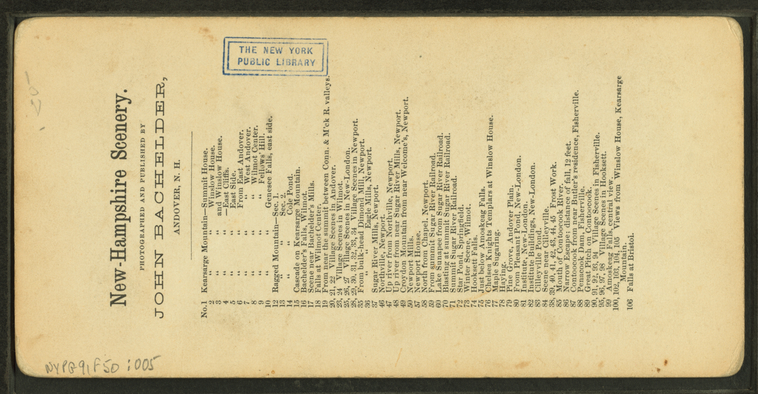 New-Hampshire Scenery.
PHOTOGRAPHED AND PUBLISHED BY
JOHN BACHELDER,
ANDOVER, N. H.
No. 1 Kearsarge Mountain—Summit House.
2 " " Winslow House.
3 " " and Winslow House.
4 " " East Cliffs.
5 " " East Side.
6 " " From East Andover.
7 " " " West Andover.
8 " " " Wilmot Center.
9 " " Fellows' Hill.
10 " " Genesee Falls, east side.
12 Ragged Mountain—Sec. 1.
13 " " Sec. 2.
14 " " Cole Pond.
15 Cascade on Kearsarge Mountain.
16 Bachelder's Falls, Wilmot.
17 Scene near Bachelder's Mills.
18 Falls at Wilmot Center.
19 From near the summit between Conn. & M'ck R. valleys.
20, 21, 22 Village Scenes in Andover.
23, 24 Village Scenes in Wilmot.
25, 26, 27 Village Scenes in New-London.
28, 29, 30, 31, 32, 33, 34 Village Scenes in Newport.
35 From bulk-head Dimond Mill, Newport.
36 " " Eagle Mills, Newport.
37 Sugar River Mills, Newport.
46 Northville, Newport.
47 Up river from Northville, Newport.
48 Up river from near Sugar River Mills, Newport.
49 Croydon Mountain from near Welcome's, Newport.
50 Newport Mills.
57 Newport House.
58 North from Chapel, Newport.
59 From summit Sugar River Railroad.
60 Lake Sunapee from Sugar River Railroad.
70 Blasting at summit Sugar River Railroad.
71 Summit Sugar River Railroad.
72 Star Pond, Springfield.
73 Winter Scene, Wilmot.
74 Hooksett Falls.
75 Just below Amoskeag Falls.
76 Chelsea Knights Templars at Winslow House.
77 Maple Sugaring.
78 Haying.
79 Pine Grove, Andover Plain.
80 From Pleasant Pond, New-London.
81 Institute, New-London.
82 Institute Buildings, New-London.
83 Cilleyville Pond.
84 Scene near Cilleyville.
38, 39, 40, 41, 42, 43, 44, 45 Frost Work.
85 Mouth of Contoocook River.
86 Narrow Escape; distance of fall, 12 feet.
87 Contoocook from near Butler's residence, Fisherville.
88 Penacook Dam, Fisherville.
89 Great Pitch on Contoocook.
90, 91, 92, 93, 94 Village Scenes in Fisherville.
95, 96, 97, 98 Village Scenes in Hooksett.
99 Amoskeag Falls, central view.
100, 102, 103, 104, 105 Views from Winslow House, Kearsarge
Mountain.
106 Falls at Bristol.
THE NEW YORK
PUBLIC LIBRARY
NYPG91F50 :005